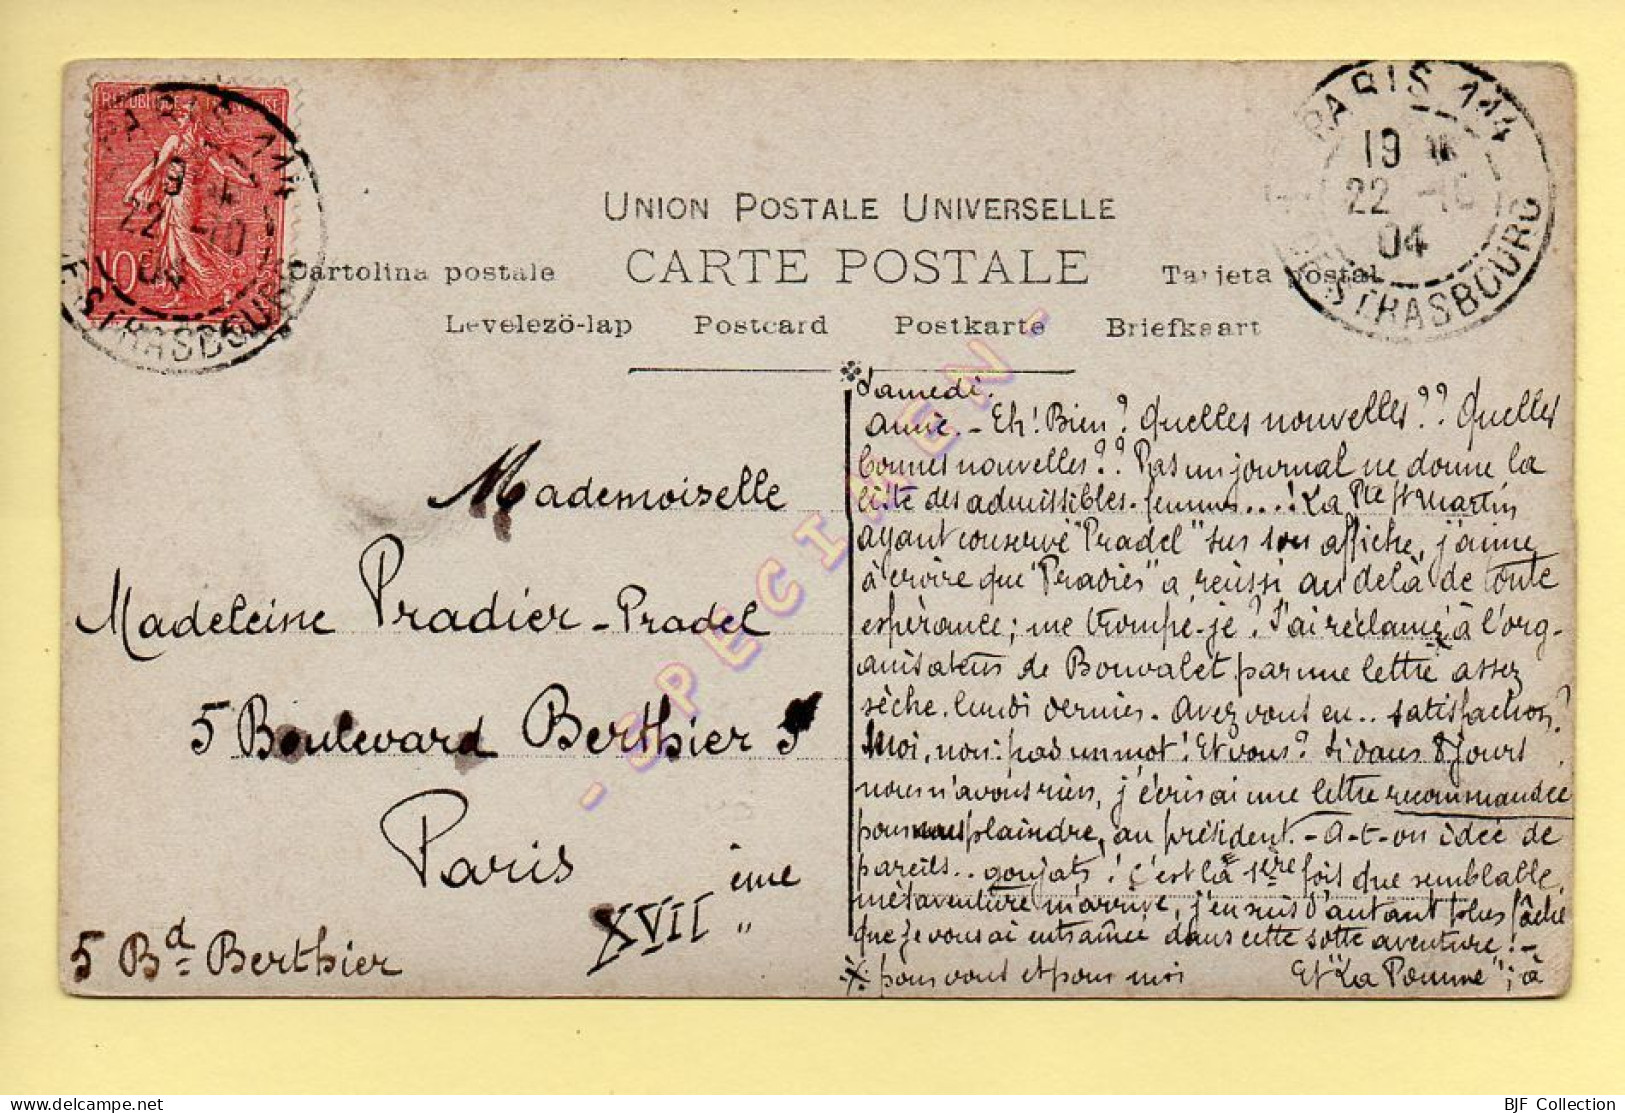 RÉPUBLIQUE FRANÇAISE
10
PARIS 114
19
22 -10
04
STRASBOURG
PARIS 114
19
22 -10
04
STRASBOURG
UNION POSTALE UNIVERSELLE
CARTE POSTALE
Cartolina postale
Tarjeta postal
Levelezö-lap Postcard Postkarte Briefkaart
- SPECIMEN -
Mademoiselle
Madeleine Pradier-Pradel
5 Boulevard Berthier 5
Paris
XVII ème
5 Bd Berthier
Samedi.
Amie. - Eh! Bien? Quelles nouvelles?? Quelles
bonnes nouvelles?? Pas un journal ne donne la
liste des admissibles-femmes....! La Pte St Martin
ayant conservé "Pradel" sur son affiche, j'aime
à croire que "Pradier" a réussi au delà de toute
espérance; me trompé-je? J'ai réclamé à l'org-
anisateur de Bouvalet par une lettre assez
sèche. lundi dernier. Avez vous eu.. satisfaction?
Moi, non: pas un mot! Et vous? Si dans 8 jours
nous n'avons rien, j'écrirai une lettre recommandée
pour nous plaindre, au président. - A-t-on idée de
pareils.. goujats! C'est la 1ère fois que semblable
mésaventure m'arrive, j'en suis d'autant plus fâché
que je vous ai entraînée dans cette sotte aventure! -
pour vous et pour moi Et "La Pomme"; à
BJF Collection